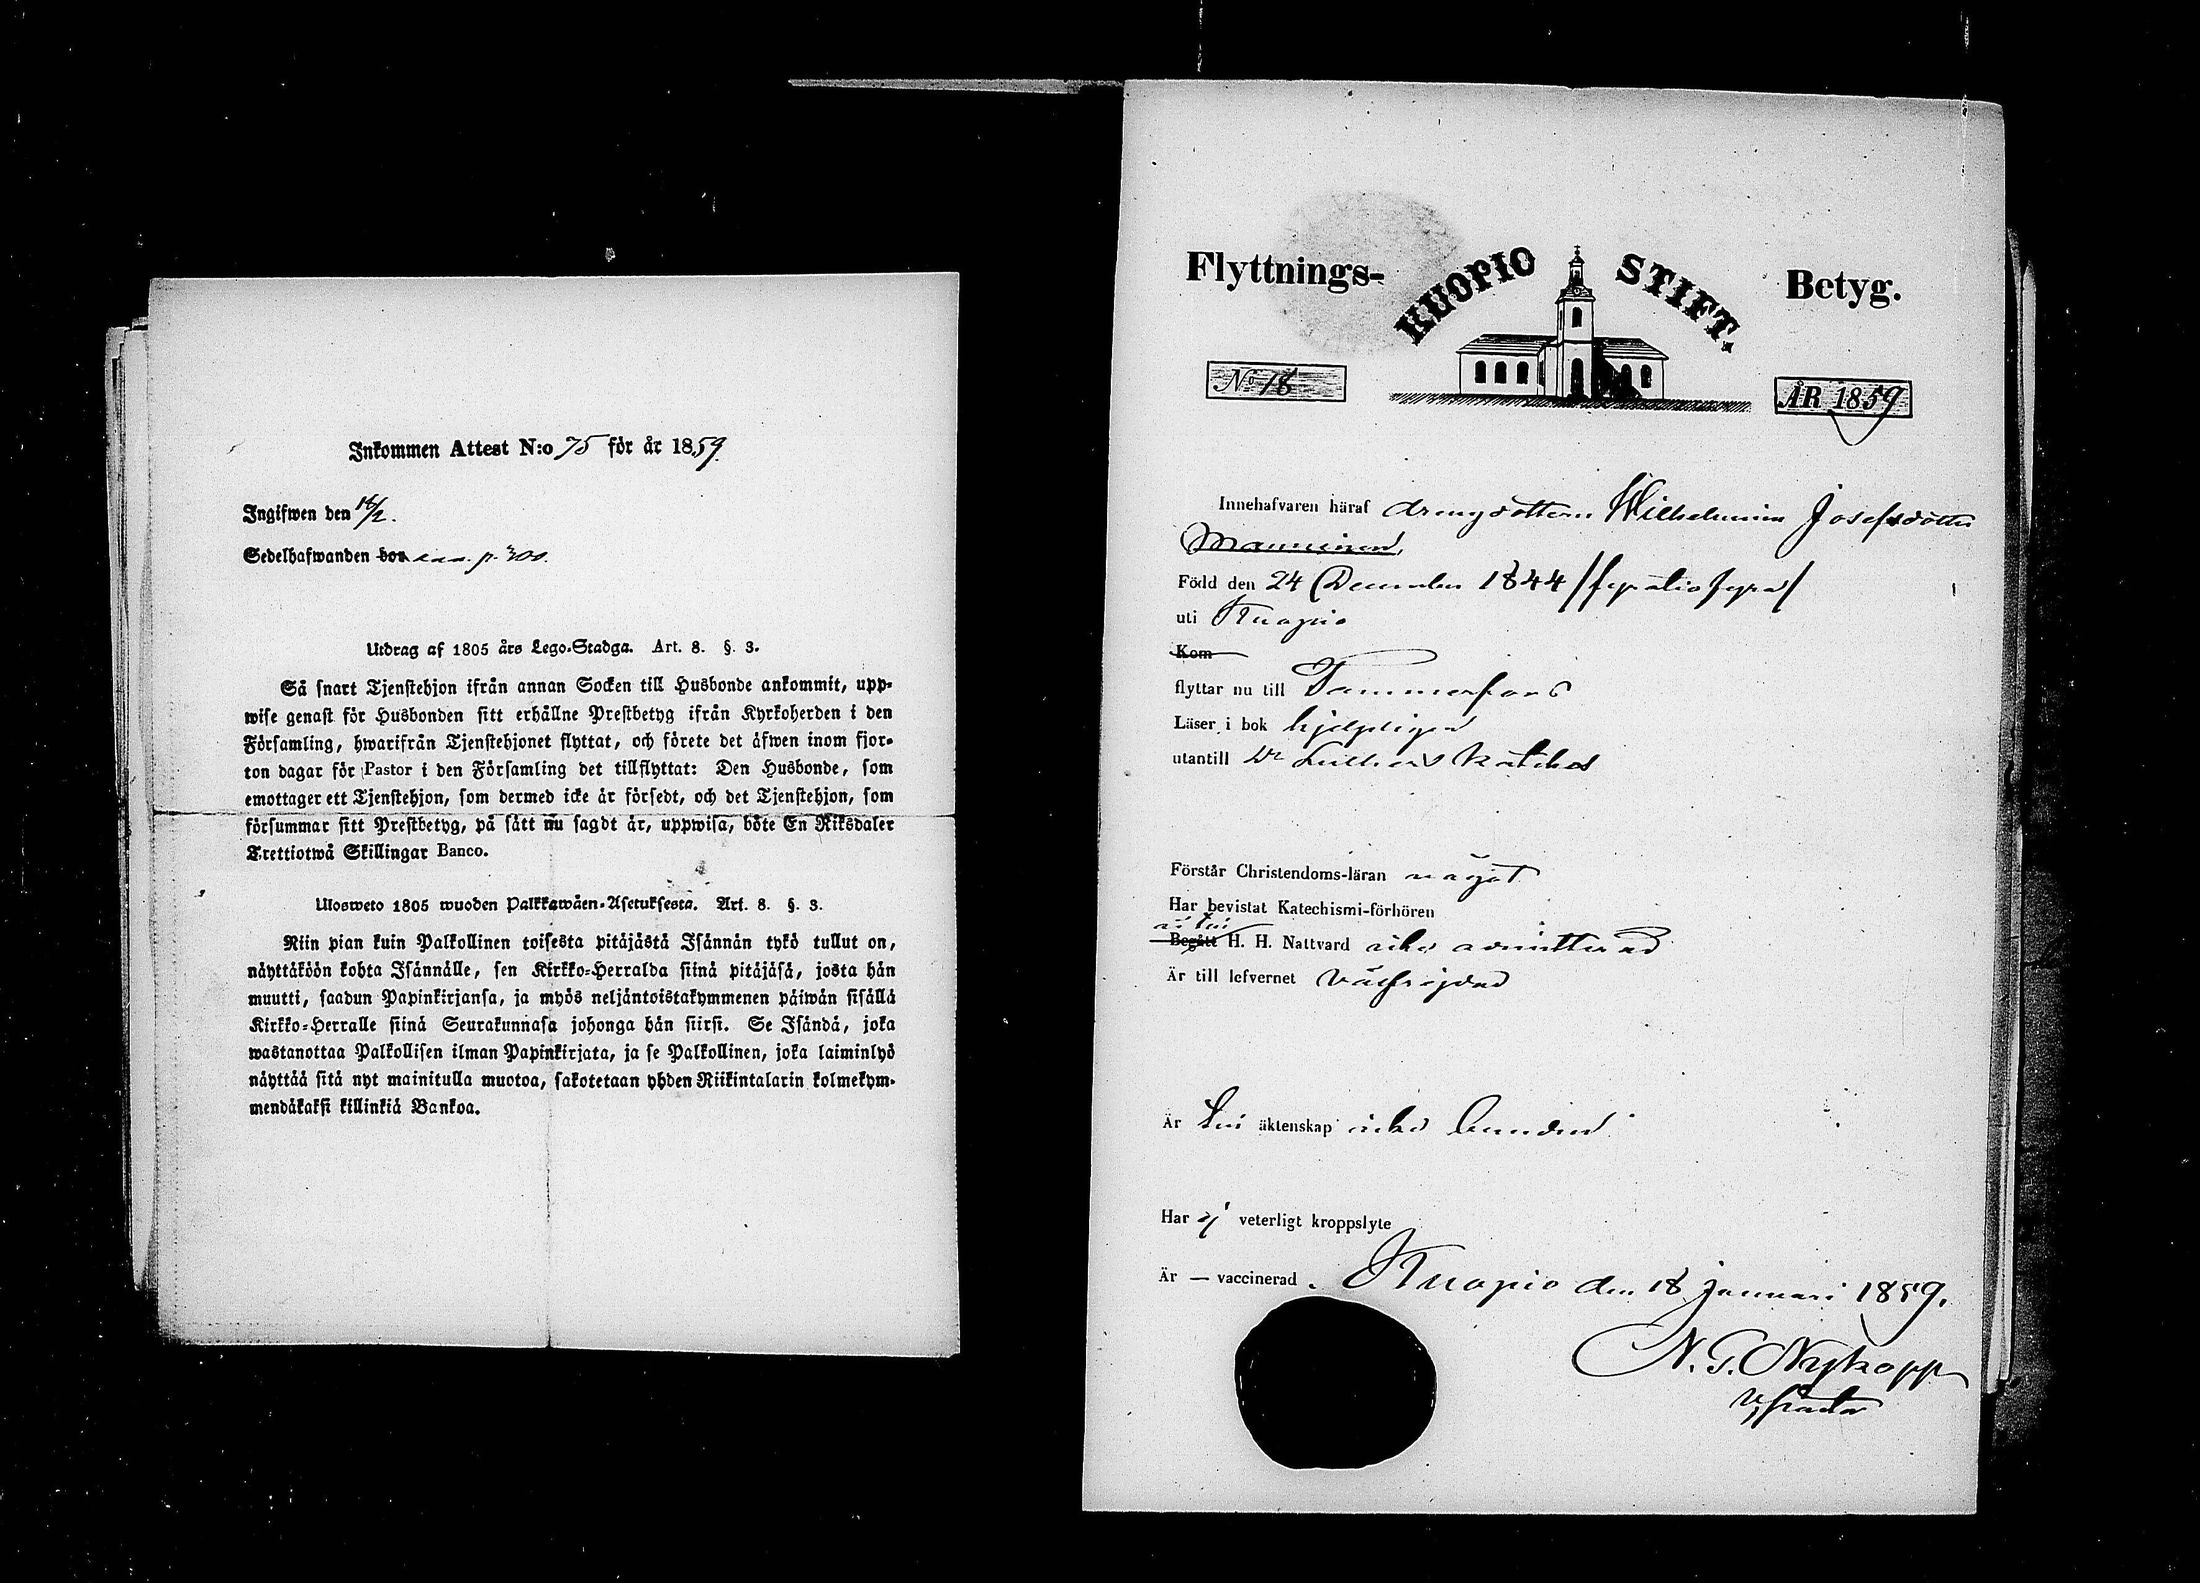 Inkommen Attest N:o 75 för år 1859.
Ingifwen den
Sedelhafwanden bor p. 300.
Utdrag af 1805 års Lego-Stadga. Art. 8. §. 3.
Så snart Tjenstehjon ifrån annan Socken till Husbonde ankommit, upp-
wise genast för Husbonden sitt erhållne Prestbetyg ifrån Kyrkoherden i den
Församling, hwarifrån Tjenstehjonet flyttat, och förete det äfwen inom fjor-
ton dagar för Pastor i den Församling det tillflyttat: Den Husbonde, som
emottager ett Tjenstehjon, som dermed icke är försedt, och det Tjenstehjon, som
försummar sitt Prestbetyg, på sätt nu sagdt är, uppwisa, böte En Riksdaler
Trettiotwå Skillingar Banco.
Ulosweto 1805 wuoden Palkkawäen-Asetuksesta. Art. 8. §. 3.
Niin pian kuin Palkollinen toisesta pitäjästä Isännän tykö tullut on,
näyttäköön kohta Isännälle, sen Kirkko-Herralda siinä pitäjäsä, josta hän
muutti, saadun Papinkirjansa, ja myös neljäntoistakymmenen päiwän sisällä
Kirkko-Herralle siinä Seurakunnasa johonga hän siirsi. Se Isändä, joka
wastanottaa Palkollisen ilman Papinkirjata, ja se Palkollinen, joka laiminlyö
näyttää sitä nyt mainitulla muotoa, sakotetaan yhden Riikintalarin kolmekym-
mendäkaksi killinkiä Bankoa.
Flyttnings- KUOPIO STIFT. Betyg.
No 18 ÅR 1859
Innehafvaren häraf drengdottern Wilhelmina Josefsdotter
Manninen,
Född den 24 December 1844 /fyratiofyra/
uti Kuopio
Kom
flyttar nu till Tammerfors
Läser i bok hjelpligen
utantill Dr Luthers katches
Förstår Christendoms-läran något
Har bevistat Katechismi-förhören
är till
Begått H. H. Nattvard icke admitterad
Är till lefvernet välfrejdad
Är till äktenskap icke bunden
Har ej veterligt kroppslyte
Är — vaccinerad. Kuopio den 18 Januari 1859.
N. G. Nykopp